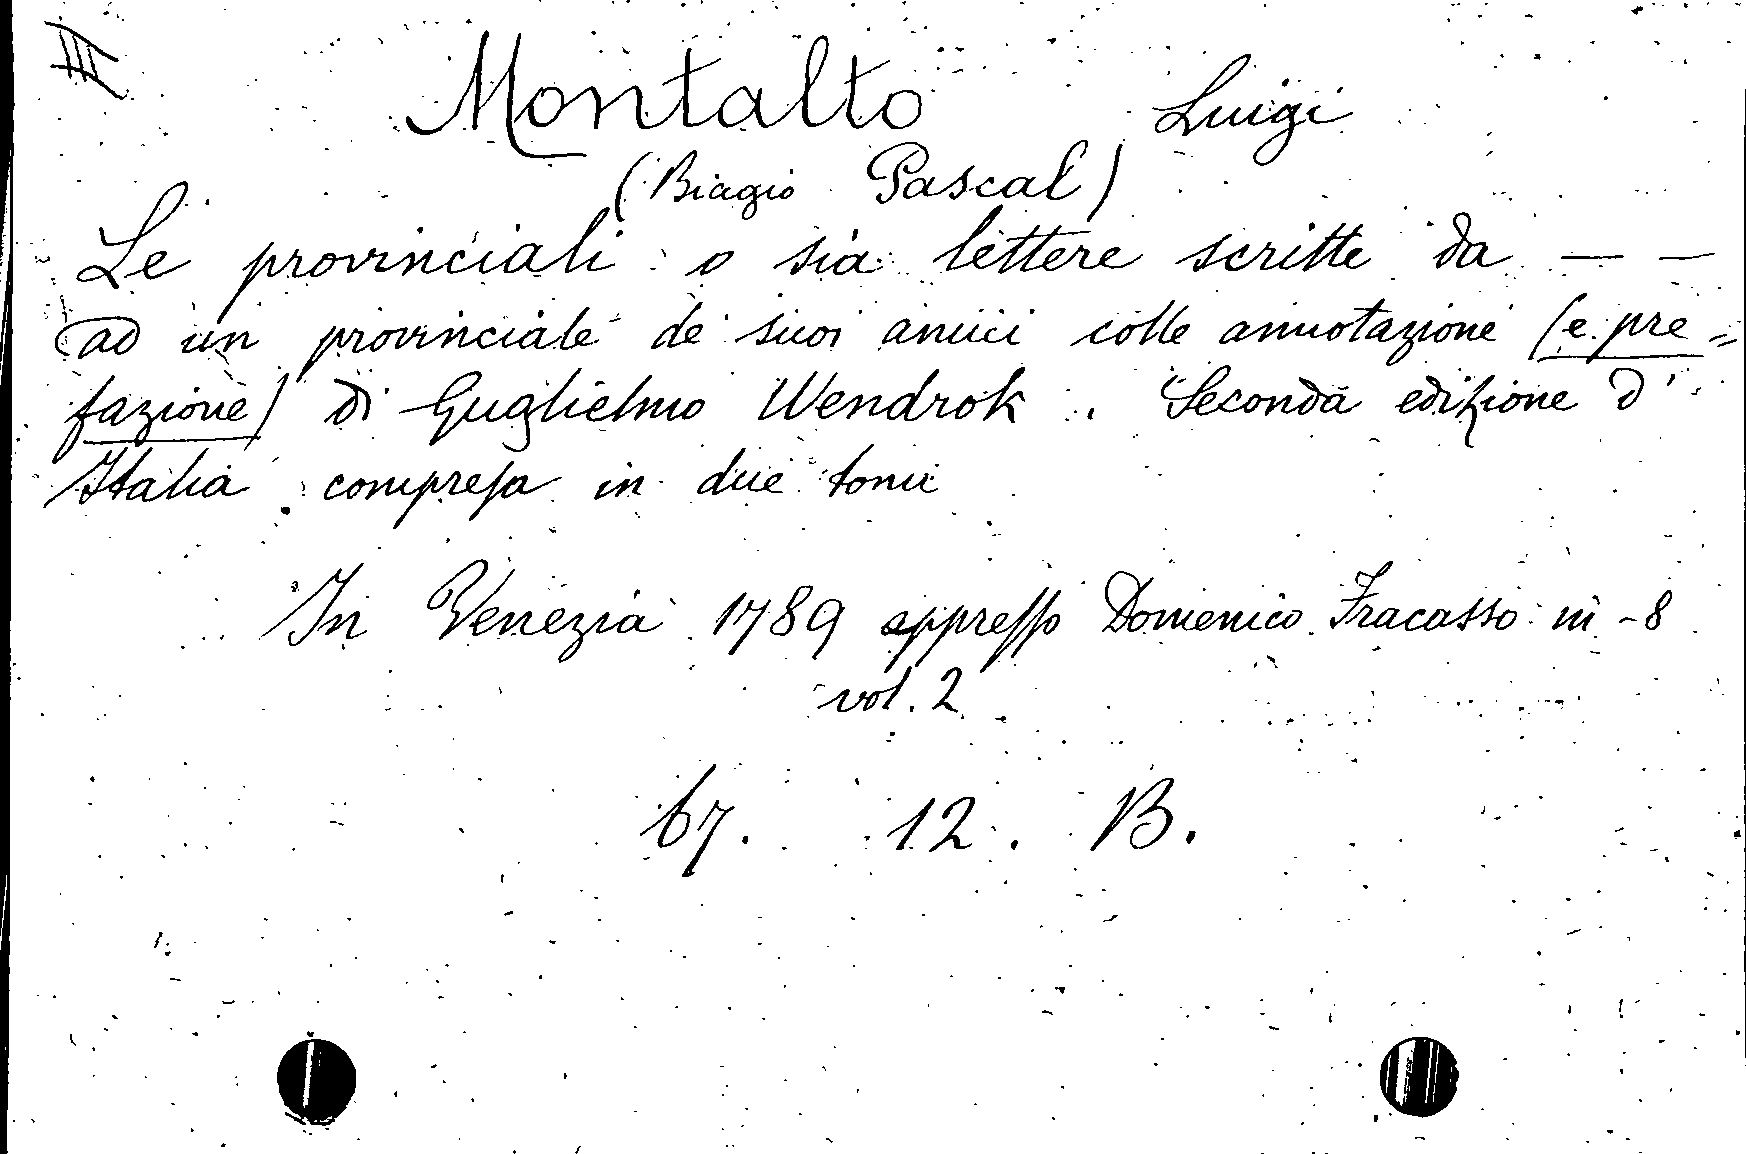 III
Montalto Luigi
(Biagio Pascal)
Le provinciali o sia lettere scritte da — —
ad un provinciale de suoi amici colle annotazione (e pre=
fazione) di Guglielmo Wendrok. Seconda edizione d'
Italia compreſa in due tomi
In Venezia 1789 appreſſo Domenico Fracasso in-8
vol. 2
67. 12. B.